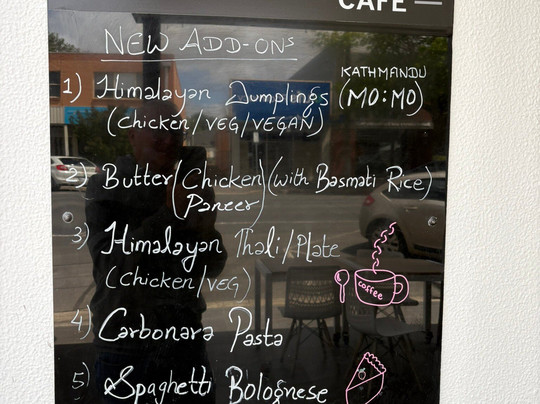 CAFE
NEW ADD-ONs
1) Himalayan Dumplings KATHMANDU (MO:MO)
(Chicken/VEG/VEGAN)
2) Butter (Chicken) (with Basmati Rice)
Paneer
3) Himalayan Thali/Plate
(Chicken/VEG)
coffee
4) Carbonara Pasta
5) Spaghetti Bolognese